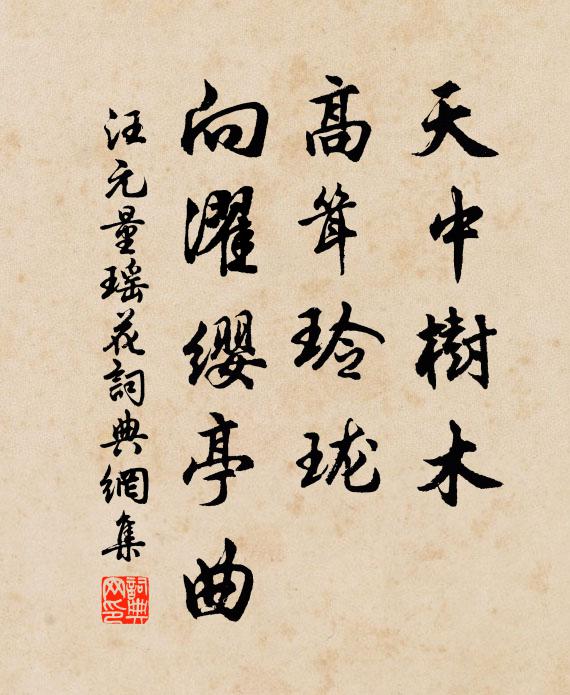 天中樹木
高耸玲珑
向濯缨亭曲
汪元量瑶花詞典網集
詞典网印